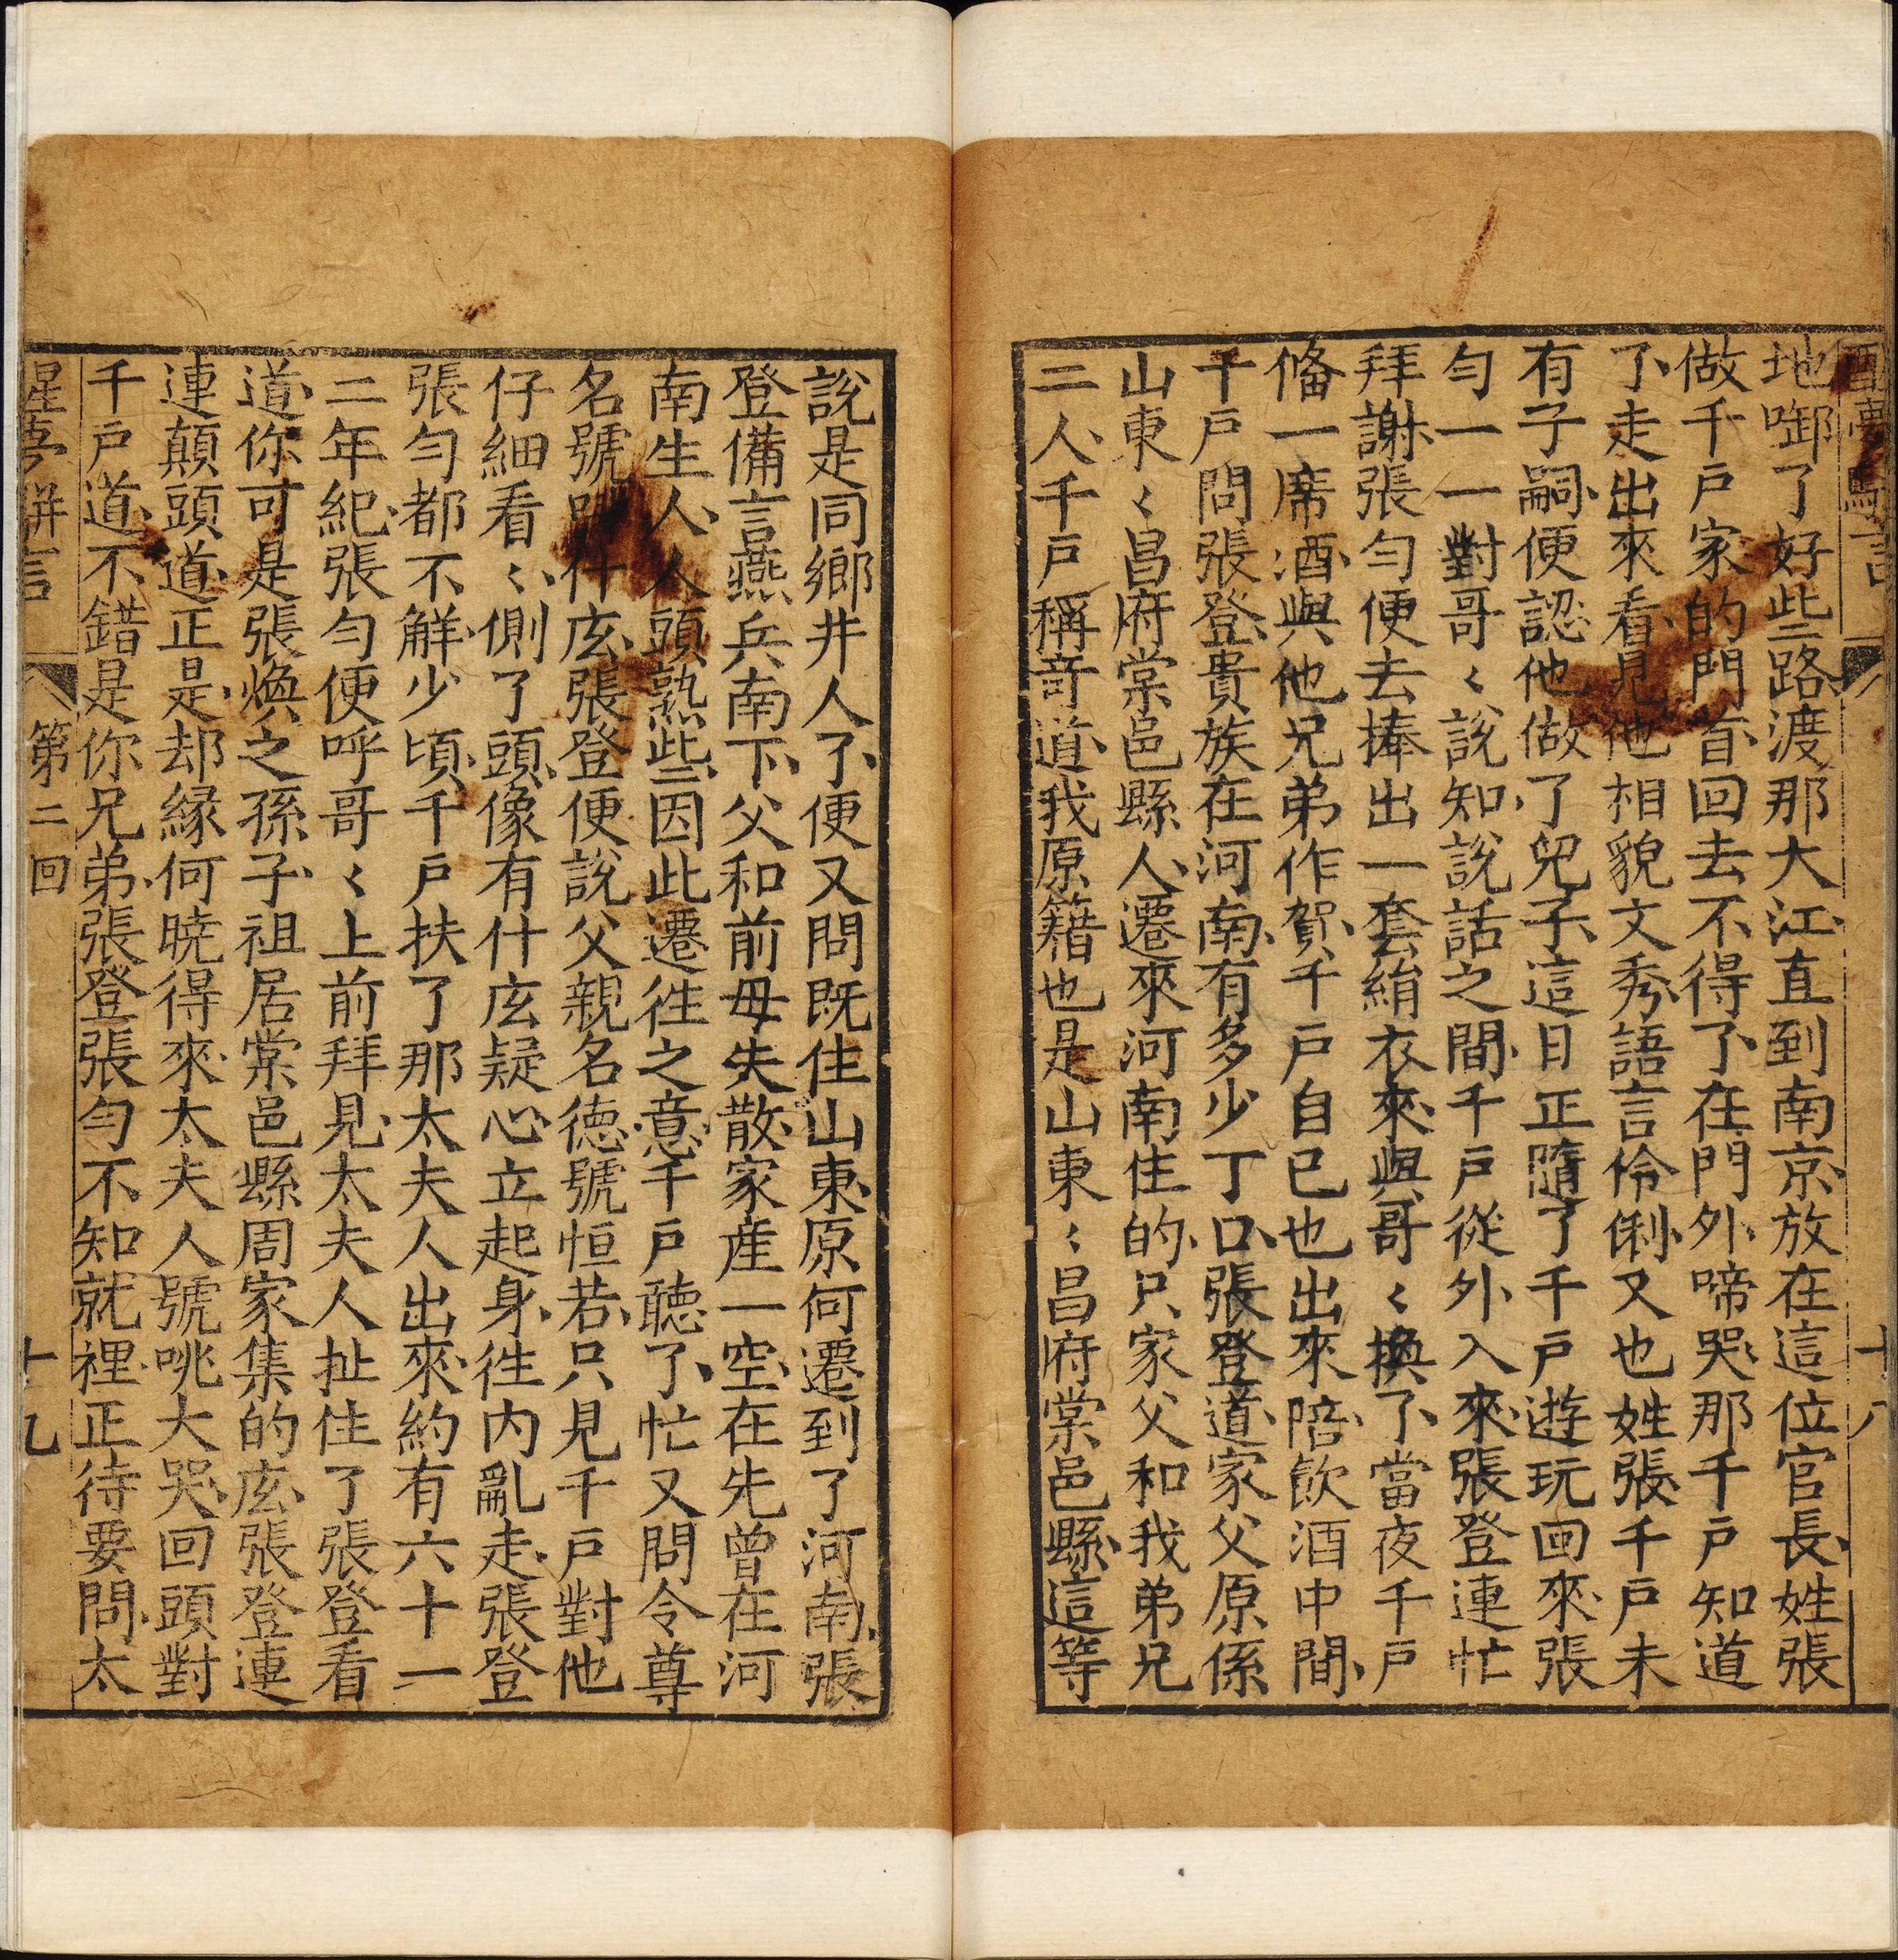 醒夢駢言 十八
地啣了好些路渡那大江直到南京放在這位官長姓張
做千戸家的門首回去不得了在門外啼哭那千戸知道
了走出來看見他相貌文秀語言伶俐又也姓張千戸未
有子嗣便認他做了兒子這日正隨了千戸遊玩回來張
勻一一對哥〻說知說話之間千戸從外入來張登連忙
拜謝張勻便去捧出一套絹衣來與哥〻換了當夜千戸
俻一席酒與他兄弟作賀千戸自已也出來陪飲酒中間
千戸問張登貴族在河南有多少丁口張登道家父原係
山東〻昌府棠邑縣人遷來河南住的只家父和我弟兄
二人千戸稱竒道我原籍也是山東〻昌府棠邑縣這等
說是同鄉井人了便又問既住山東原何遷到了河南張
登備言燕兵南下父和前母失散家産一空在先曾在河
南生人人頭熟些因此遷徃之意千戸聽了忙又問令尊
名號叫什庅張登便說父親名德號恒若只見千戸對他
仔細看〻側了頭像有什庅疑心立起身徃内亂走張登
張勻都不觧少頃千戸扶了那太夫人出來約有六十一
二年紀張勻便呼哥〻上前拜見太夫人扯住了張登看
道你可是張煥之孫子祖居棠邑縣周家集的庅張登連
連顛頭道正是却縁何曉得來太夫人號咷大哭回頭對
千戸道不錯是你兄弟張登張勻不知就裡正待要問太
醒夢駢言 第二回 十九